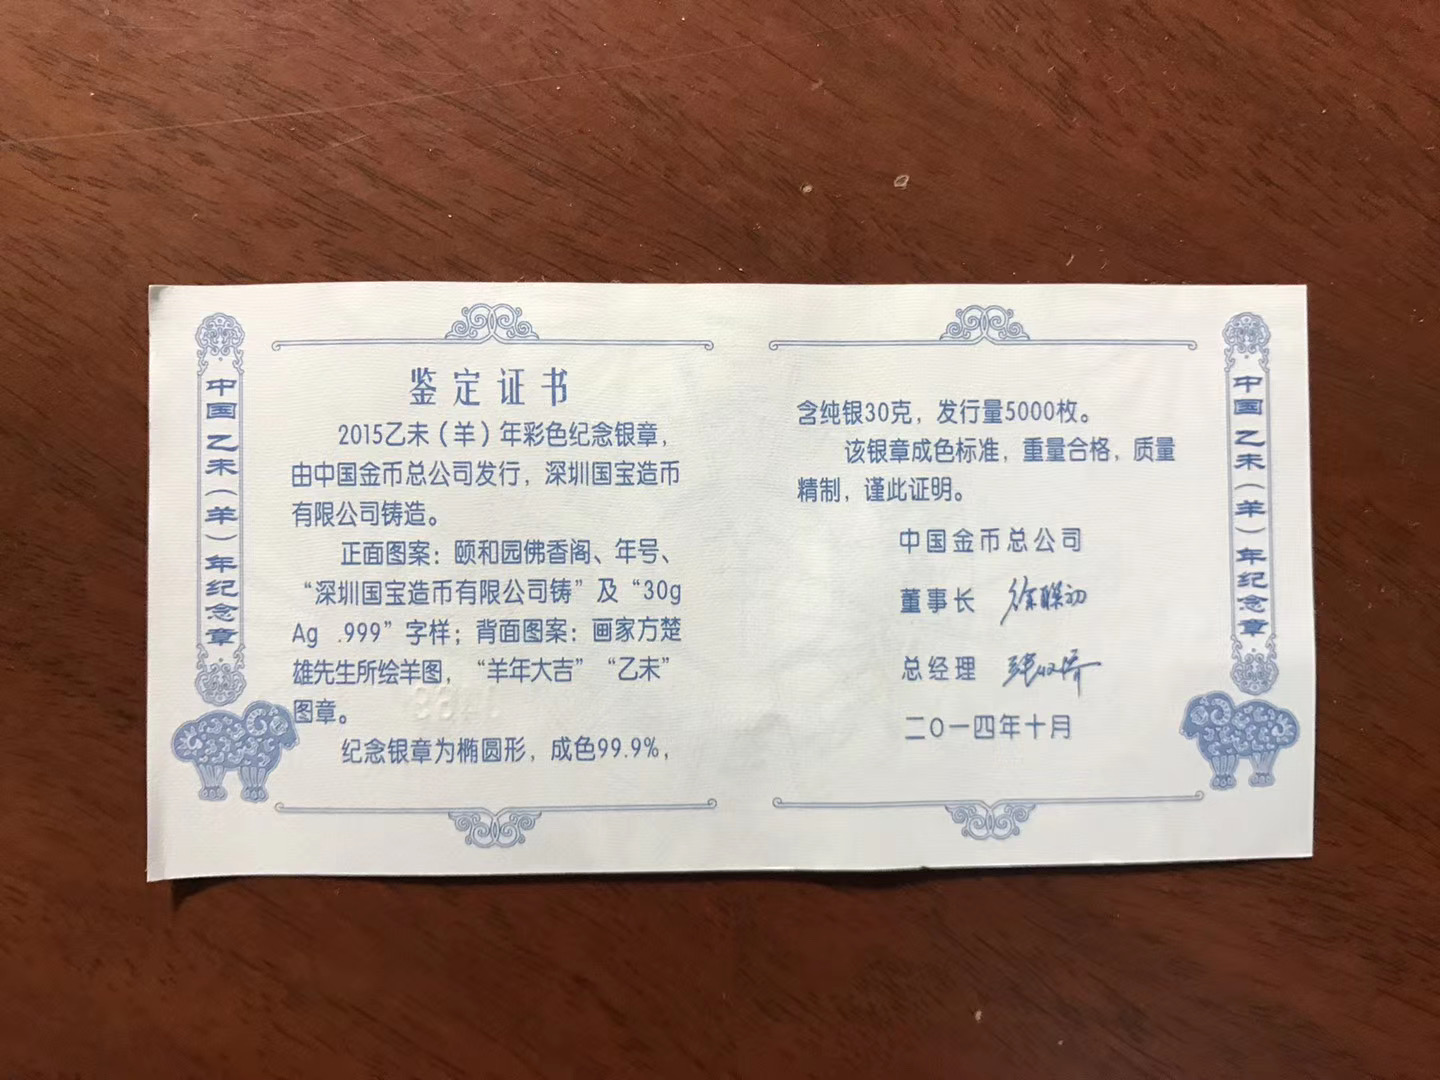 中国乙未(羊)年纪念章
鉴定证书
2015乙未(羊)年彩色纪念银章,
由中国金币总公司发行, 深圳国宝造币
有限公司铸造。
正面图案: 颐和园佛香阁、年号、
“深圳国宝造币有限公司铸”及“30g
Ag .999”字样; 背面图案: 画家方楚
雄先生所绘羊图, “羊年大吉”“乙未”
图章。
纪念银章为椭圆形, 成色99.9%,
含纯银30克, 发行量5000枚。
该银章成色标准, 重量合格, 质量
精制, 谨此证明。
中国金币总公司
董事长
总经理
二〇一四年十月
中国乙未(羊)年纪念章